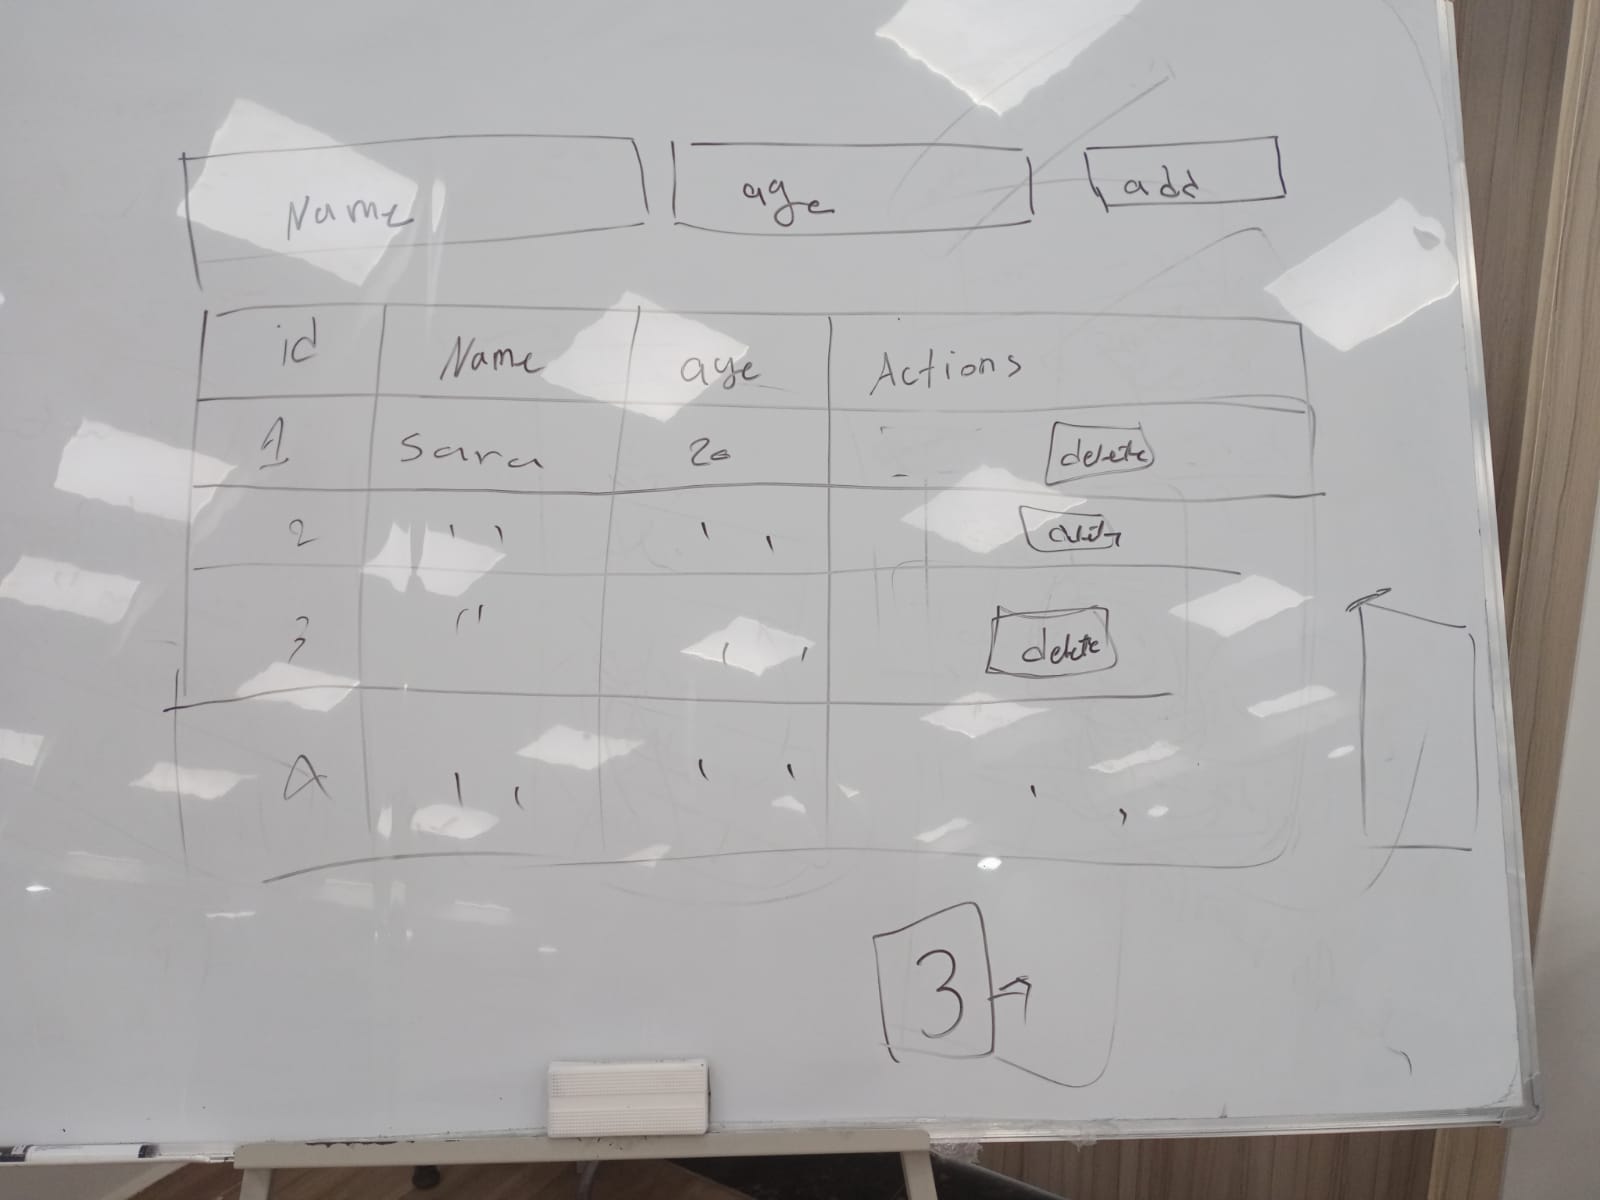 Name age add
id Name age Actions
1 Sara 20 delete
2 '' ''
3 '' '' delete
'' '' ''
3